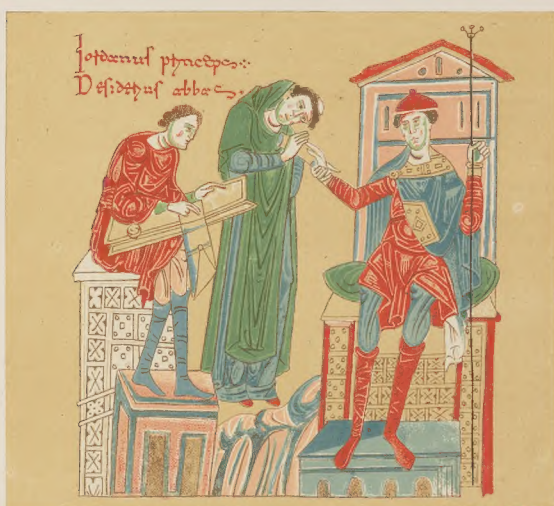 Iordanus princeps:·
Desiderius abbas.